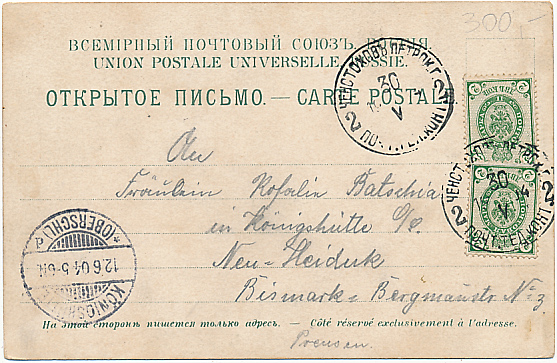 300.-
ВСЕМІРНЫЙ ПОЧТОВЫЙ СОЮЗЪ. РОССІЯ.
UNION POSTALE UNIVERSELLE. RUSSIE.
ОТКРЫТОЕ ПИСЬМО. — CARTE POSTALE.
ЧЕНСТОХОВЪ ПЕТРОК. Г.
30
V
2 ПОЧТ. ТЕЛ. КОНТ. 2
ЧЕНСТОХОВЪ ПЕТРОК. Г.
30
V
2 ПОЧТ. ТЕЛ. КОНТ. 2
An
Fräulein Rosalie Batschia
in Königshütte O/S
Neu=Heiduk
Bismark=Bergmannstr. No 3
*(OBERSCHL.)
12.6.04. 5-6N.
KÖNIGSH
На этой сторонѣ пишется только адресъ. — Côté réservé exclusivement à l'adresse.
Preussen.